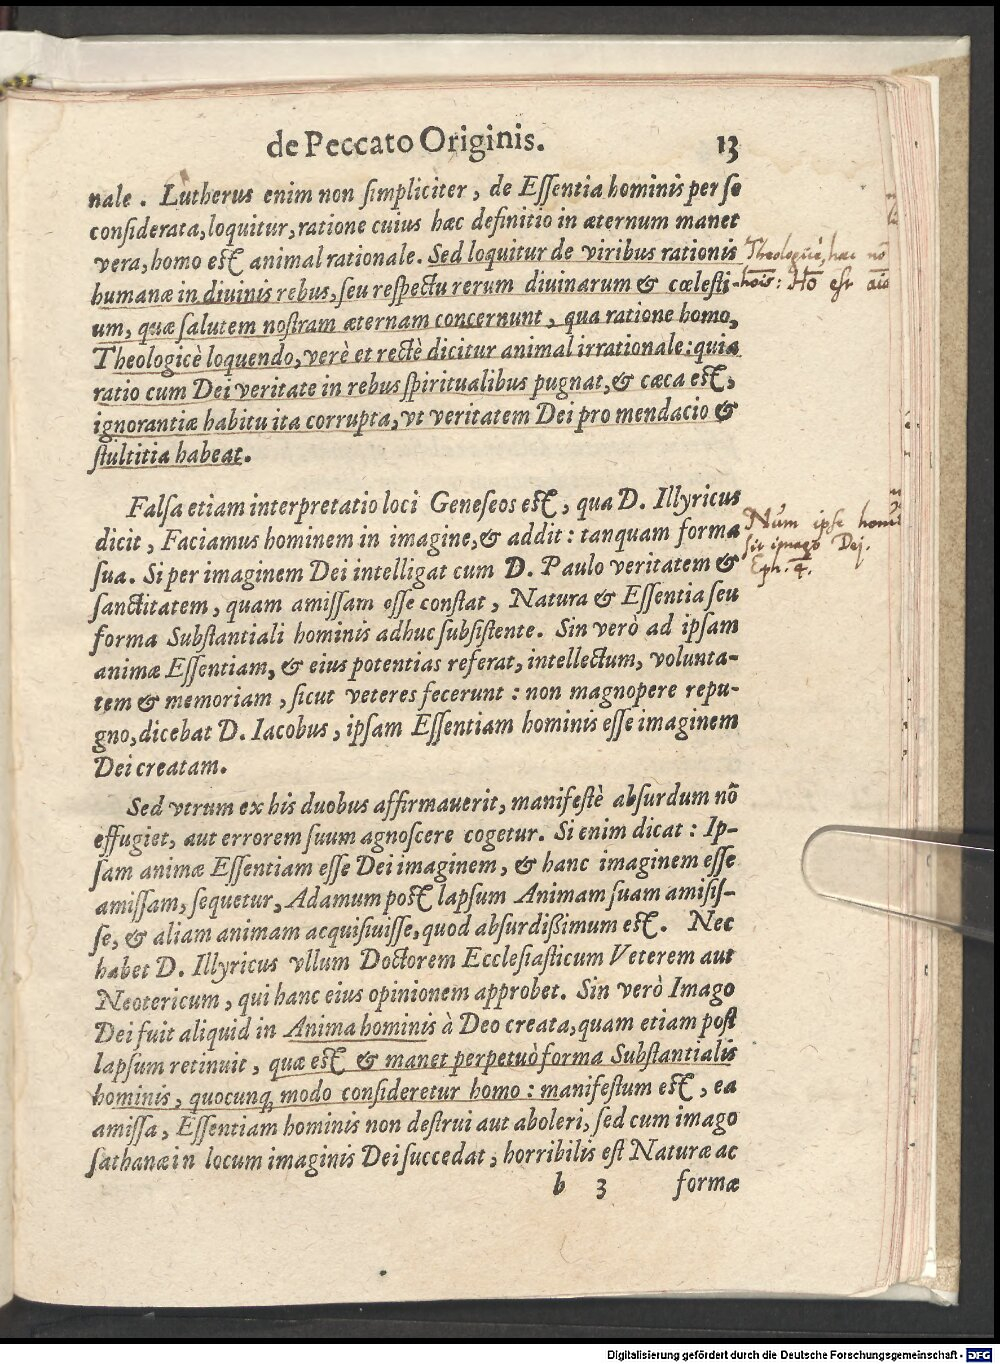 de Peccato Originis. 13
nale. Lutherus enim non ſimpliciter, de Eſſentia hominis per ſe
conſiderata, loquitur, ratione cuius hæc definitio in æternum manet
vera, homo eſt animal rationale. Sed loquitur de viribus rationis
humanæ in diuinis rebus, ſeu reſpectu rerum diuinarum & cœleſti-
um, quæ ſalutem noſtram æternam concernunt, qua ratione homo,
Theologicè loquendo, verè et rectè dicitur animal irrationale: quia
ratio cum Dei veritate in rebus ſpiritualibus pugnat, & cæca eſt,
ignorantiæ habitu ita corrupta, vt veritatem Dei pro mendacio &
ſtultitia habeat.
Theologicè, hæc nō
hōis: Hō eſt
Falſa etiam interpretatio loci Geneſeos eſt, qua D. Illyricus
dicit, Faciamus hominem in imagine, & addit: tanquam forma
ſua. Si per imaginem Dei intelligat cum D. Paulo veritatem &
ſanctitatem, quam amiſſam eſſe conſtat, Natura & Eſſentia ſeu
forma Subſtantiali hominis adhuc ſubſiſtente. Sin verò ad ipſam
animæ Eſſentiam, & eius potentias referat, intellectum, volunta-
tem & memoriam, ſicut veteres fecerunt: non magnopere repu-
gno, dicebat D. Iacobus, ipſam Eſſentiam hominis eſſe imaginem
Dei creatam.
Num ipſe
ſit imago Dej.
Eph. 4.
Sed vtrum ex his duobus affirmauerit, manifeſtè abſurdum nō
effugiet, aut errorem ſuum agnoſcere cogetur. Si enim dicat: Ip-
ſam animæ Eſſentiam eſſe Dei imaginem, & hanc imaginem eſſe
amiſſam, ſequetur, Adamum poſt lapſum Animam ſuam amiſiſ-
ſe, & aliam animam acquiſiuiſſe, quod abſurdißimum eſt. Nec
habet D. Illyricus vllum Doctorem Eccleſiaſticum Veterem aut
Neotericum, qui hanc eius opinionem approbet. Sin verò Imago
Dei fuit aliquid in Anima hominis à Deo creata, quam etiam poſt
lapſum retinuit, quæ eſt & manet perpetuò forma Subſtantialis
hominis, quocunq; modo conſideretur homo: manifeſtum eſt, ea
amiſſa, Eſſentiam hominis non deſtrui aut aboleri, ſed cum imago
ſathanæ in locum imaginis Dei ſuccedat, horribilis eſt Naturæ ac
b 3 formæ
Digitalisierung gefördert durch die Deutsche Forschungsgemeinschaft - DFG